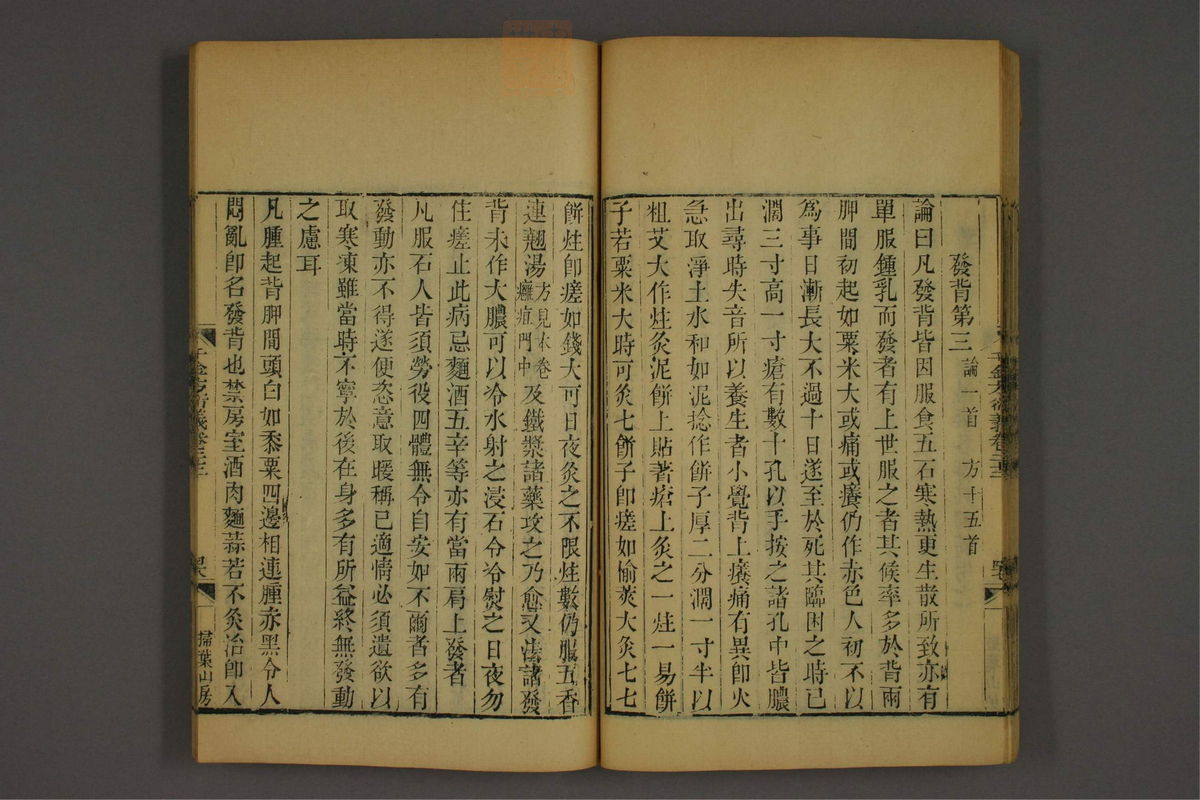 發背第三 論一首 方十五首
論曰凡發背皆因服食五石寒熱更生散所致亦有
單服鍾乳而發者有上世服之者其候率多於背兩
胛間初起如粟米大或痛或癢仍作赤色人初不以
為事日漸長大不過十日遂至於死其臨困之時已
濶三寸高一寸瘡有數十孔以手按之諸孔中皆膿
出尋時失音所以養生者小覺背上癢痛有異即火
急取淨土水和如泥捻作餅子厚二分濶一寸半以
粗艾大作炷灸泥餅上貼著瘡上灸之一炷一易餅
子若粟米大時可灸七餅子即瘥如榆莢大灸七七
餅炷即瘥如錢大可日夜灸之不限炷數仍服五香
連翹湯方見本卷癰疽門中及鐵漿諸藥攻之乃愈又法諸發
背未作大膿可以冷水射之浸石令冷熨之日夜勿
住瘥止此病忌麵酒五辛等亦有當兩肩上發者
凡服石人皆須勞役四體無令自安如不爾者多有
發動亦不得遂便恣意取暖稱已適情必須遺欲以
取寒凍雖當時不寧於後在身多有所益終無發動
之慮耳
凡腫起背胛間頭白如黍粟四邊相連腫赤黑令人
悶亂即名發背也禁房室酒肉麵蒜若不灸治即入
千金方衍義卷二十二
掃葉山房